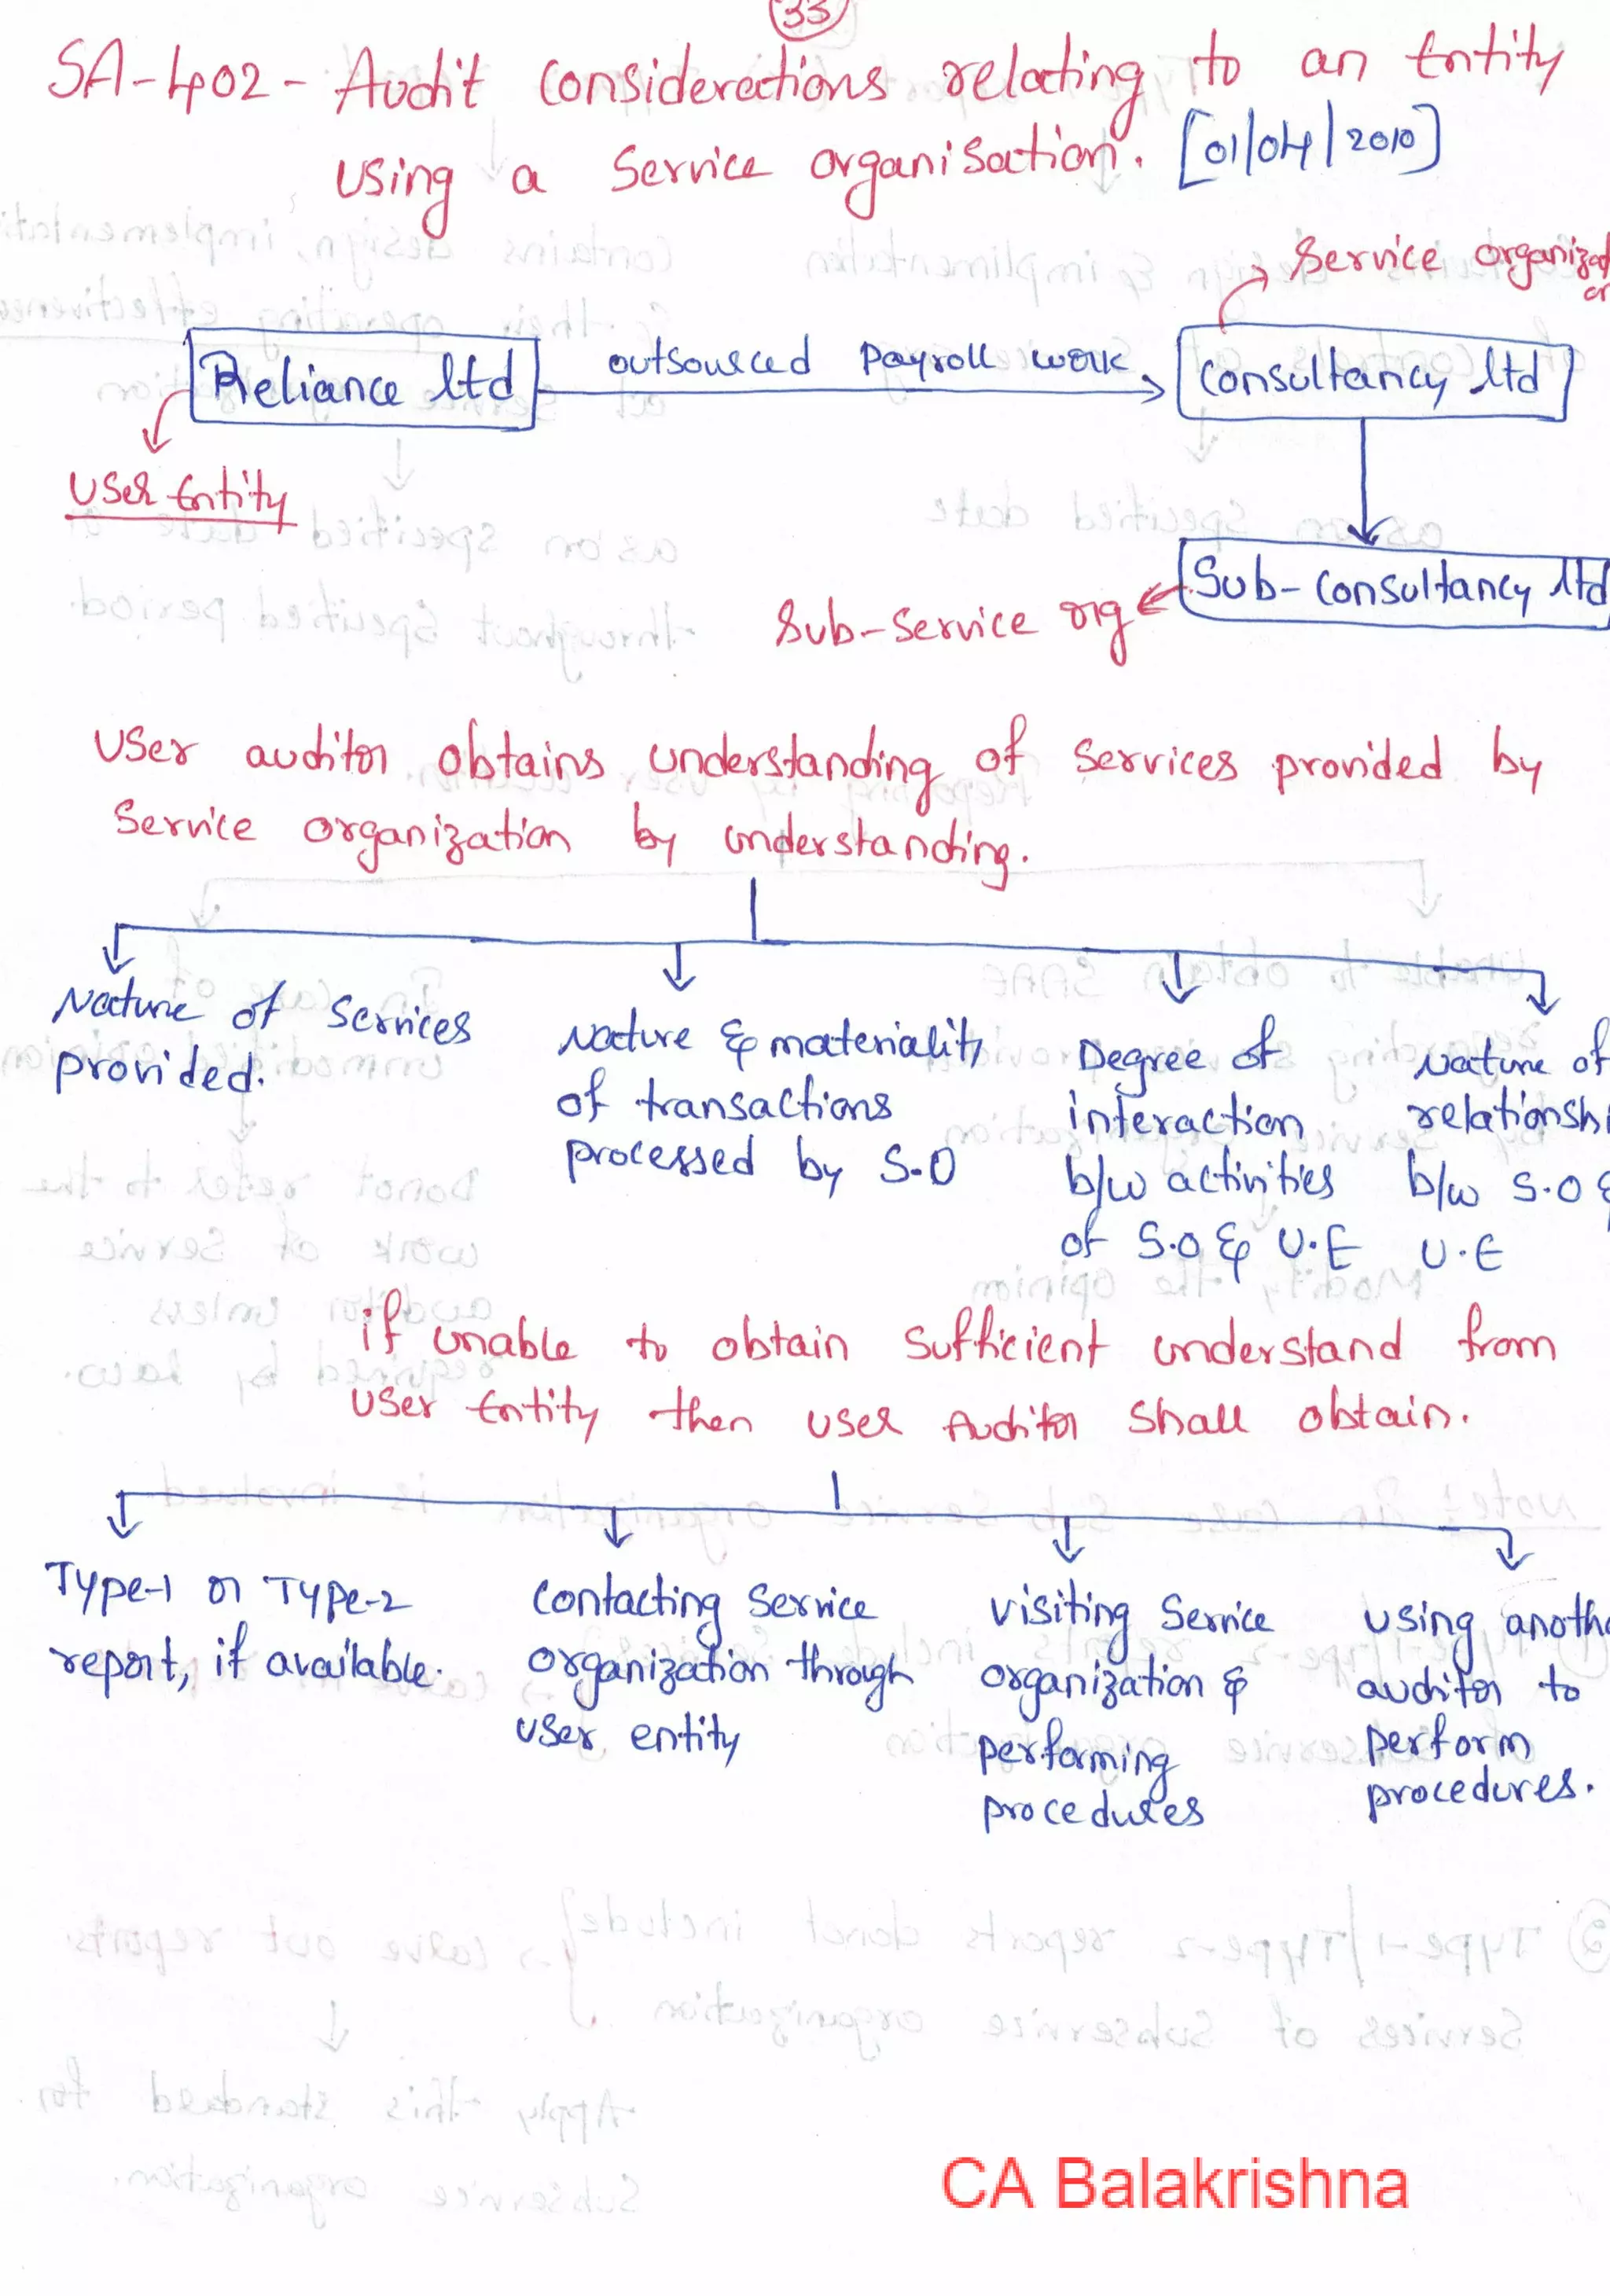 33
SA-402 - Audit considerations relating to an Entity
using a service organisation. [01/04/2010]
Service organizat
Reliance ltd
outsourced payroll work
Consultancy ltd
User Entity
Sub-Consultancy ltd
Sub-service org
User auditor obtains understanding of services provided by
Service organization by understanding.
Nature of services
provided.
Nature & materiality
of transactions
processed by S.O
Degree of
interaction
b/w activities
of S.O & U.E
Nature of
relationshi
b/w S.O &
U.E
if unable to obtain sufficient understand from
user Entity then user Auditor shall obtain.
Type-1 or Type-2
report, if available.
contacting service
organization through
user entity
visiting service
organization &
performing
procedures
using anothe
auditor to
perform
procedures.
CA Balakrishna